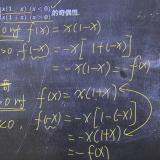 x(1-x) (x<0)
x(1+x) (x>0) 的奇偶性.
f(x)=x(1-x)
>0, f(-x) = -x[1+(-x)]
= -x(1-x) = -f(x)
f(x)=x(1+x)
<0, f(-x) = -x[1-(-x)]
= -x(1+x)
= -f(x)